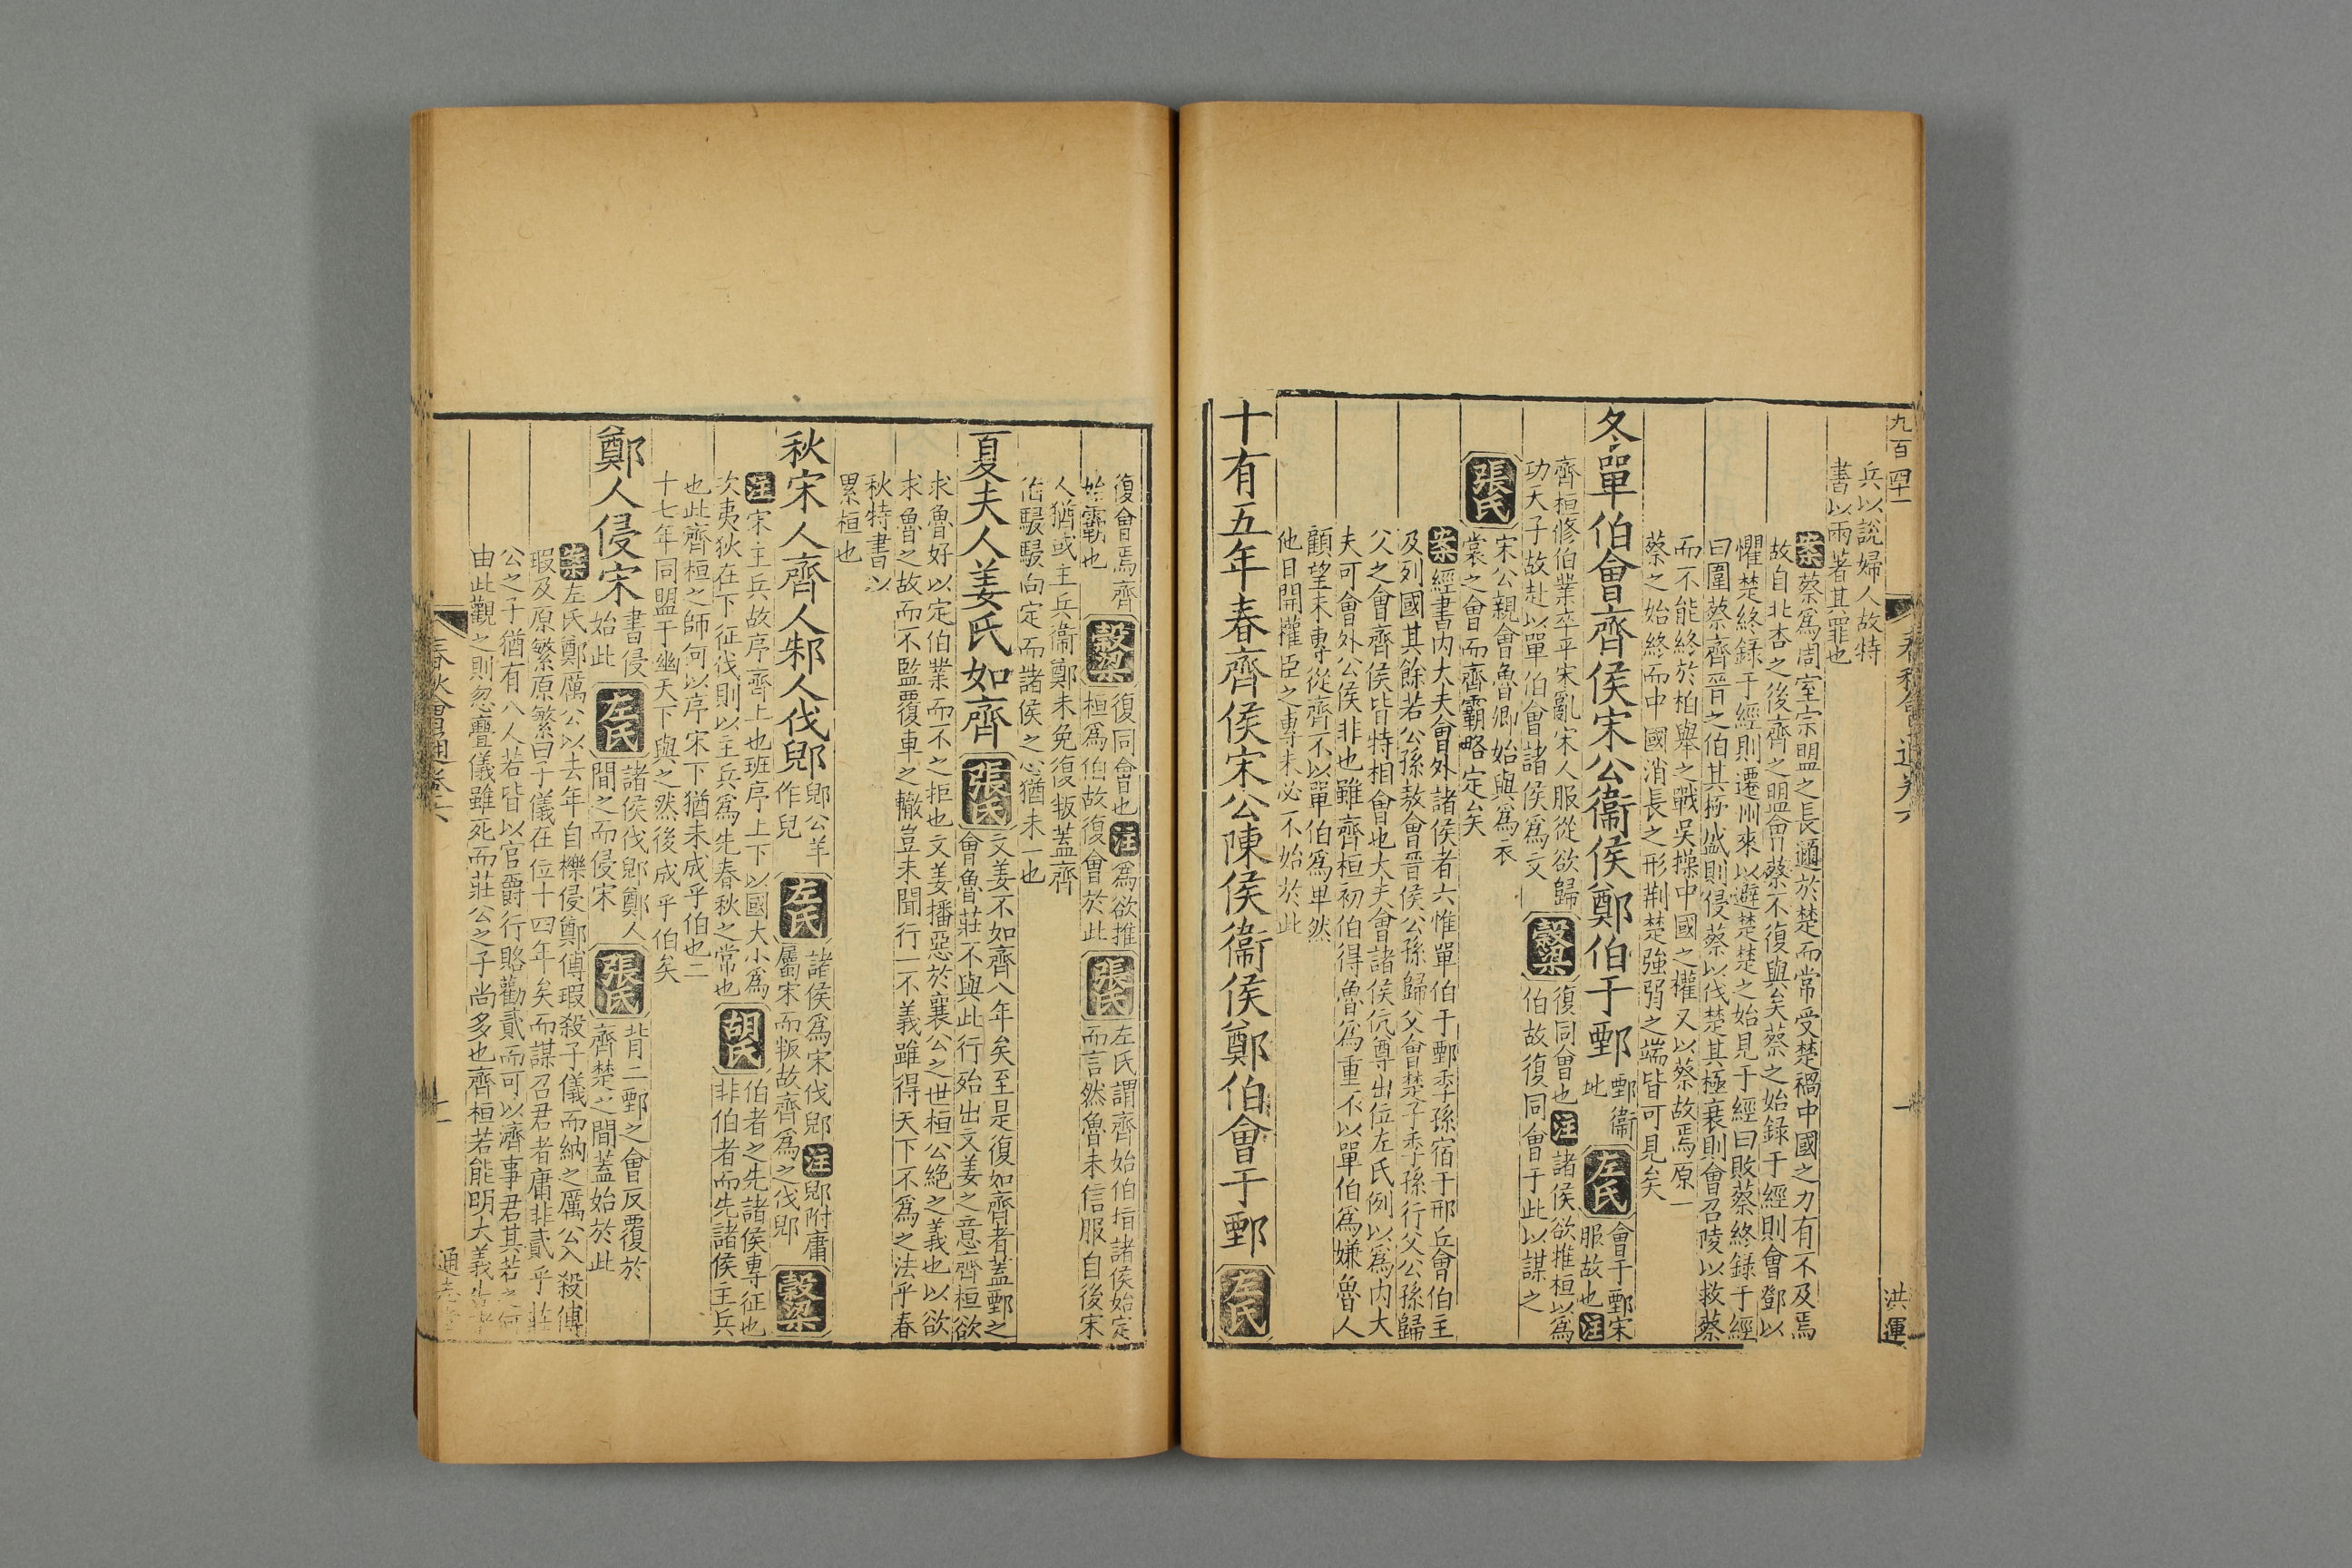 九百四十一
春秋會通卷六
一
洪運
兵以說婦人故特
書以兩著其罪也
案蔡爲周室宗盟之長邇於楚而常受楚禍中國之力有不及焉
故自北杏之後齊之盟會蔡不復與矣蔡之始錄于經則會鄧以
懼楚終錄于經則遷州來以避楚楚之始見于經曰敗蔡終錄于經
曰圍蔡齊晋之伯其極盛則侵蔡以伐楚其極衰則會召陵以救蔡
而不能終於柏舉之戰吳操中國之權又以蔡故焉原一
蔡之始終而中國消長之形荆楚強弱之端皆可見矣
冬單伯會齊侯宋公衞侯鄭伯于鄄
鄄衞
地
左氏
會于鄄宋
服故也注
齊桓修伯業卒平宋亂宋人服從欲歸
功天子故赴以單伯會諸侯爲文
穀梁
復同會也注諸侯欲推桓以爲
伯故復同會于此以謀之
張氏
宋公親會魯卿始與爲衣
裳之會而齊霸略定矣
案經書内大夫會外諸侯者六惟單伯于鄄季孫宿于邢丘會伯主
及列國其餘若公孫敖會晋侯公孫歸父會楚子季孫行父公孫歸
父之會齊侯皆特相會也大夫會諸侯伉尊出位左氏例以爲内大
夫可會外公侯非也雖齊桓初伯得魯爲重不以單伯爲嫌魯人
顧望未專從齊不以單伯爲卑然
他日開權臣之專未必不始於此
十有五年春齊侯宋公陳侯衞侯鄭伯會于鄄
左氏
復會焉齊
始霸也
穀梁
復同會也注爲欲推
桓爲伯故復會於此
張氏
左氏謂齊始伯指諸侯始定
而言然魯未信服自後宋
人猶或主兵衞鄭未免復叛蓋齊
伯駸駸向定而諸侯之心猶未一也
夏夫人姜氏如齊
張氏
文姜不如齊八年矣至是復如齊者蓋鄄之
會魯莊不與此行殆出文姜之意齊桓欲
求魯好以定伯業而不之拒也文姜播惡於襄公之世桓公絶之義也以欲
求魯之故而不監覆車之轍豈未聞行一不義雖得天下不爲之法乎春
秋特書以
累桓也
秋宋人齊人邾人伐郳
郳公羊
作兒
左氏
諸侯爲宋伐郳注郳附庸
屬宋而叛故齊爲之伐郳
穀梁
注宋主兵故序齊上也班序上下以國大小爲
次夷狄在下征伐則以主兵爲先春秋之常也
胡氏
伯者之先諸侯専征也
非伯者而先諸侯主兵
也此齊桓之師何以序宋下猶未成乎伯也二
十七年同盟于幽天下與之然後成乎伯矣
鄭人侵宋
書侵
始此
左氏
諸侯伐郳鄭人
間之而侵宋
張氏
背二鄄之會反覆於
齊楚之間蓋始於此
案左氏鄭厲公以去年自櫟侵鄭傅瑕殺子儀而納之厲公入殺傅
瑕及原繁原繁曰子儀在位十四年矣而謀召君者庸非貳乎莊
公之子猶有八人若皆以官爵行賂勸貳而可以濟事君其若之何
由此觀之則忽亹儀雖死而莊公之子尚多也齊桓若能明大義
春秋會通卷六
十一
通志堂